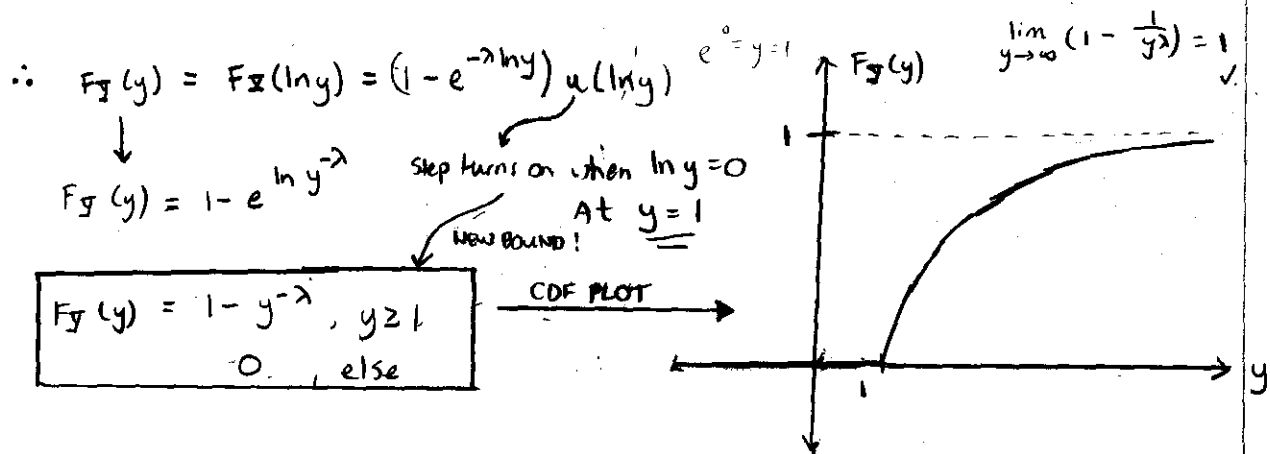 ∴ F_Y(y) = F_X(ln y) = (1 - e^{-λ ln y}) u(ln y)
e^0 = y = 1
F_Y(y) = 1 - e^{ln y^{-λ}}
step turns on when ln y = 0
At y = 1
NEW BOUND!
F_Y(y) = 1 - y^{-λ}, y ≥ 1
0. , else
CDF PLOT
F_Y(y)
lim y→∞ (1 - 1/y^λ) = 1 ✓.
1
1
y